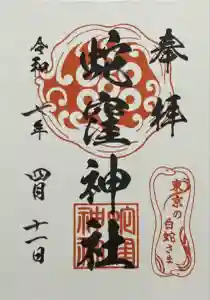 奉拝
蛇窪神社
令和
七年
四月
十一日
東京の
白蛇さま
蛇窪神社